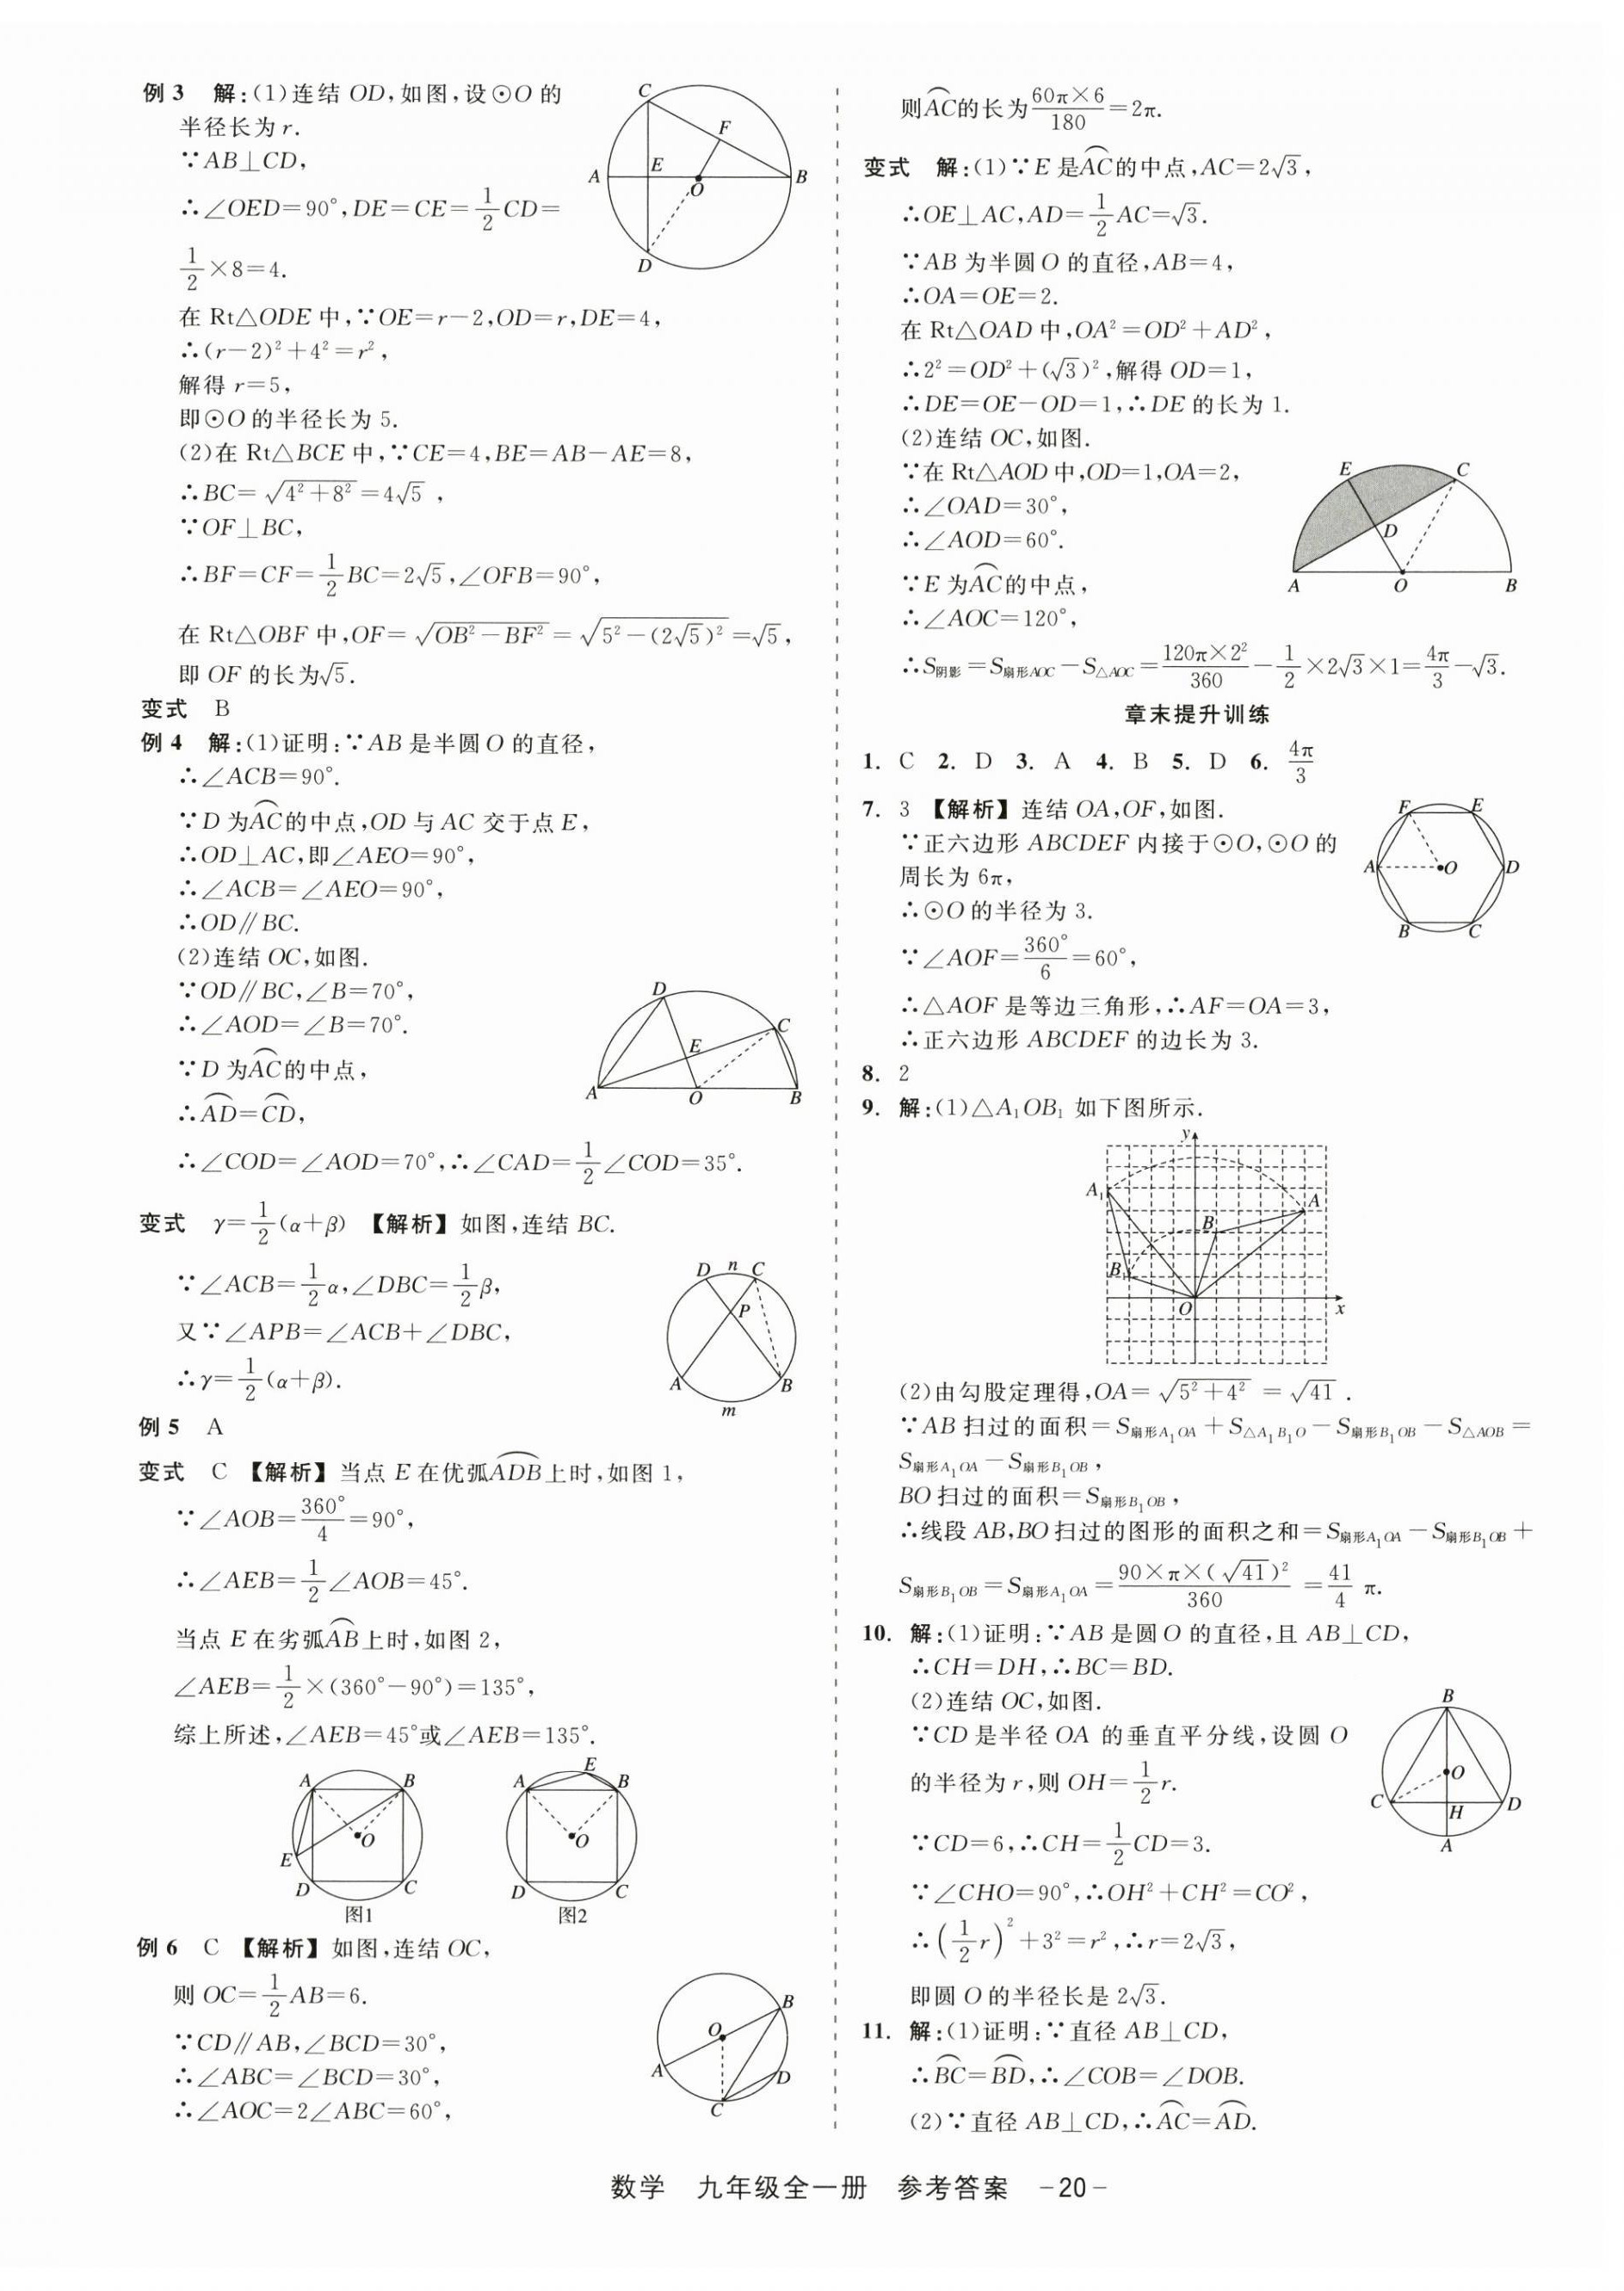 例 3　解:(1)连结 OD,如图,设⊙O 的
半径长为 r.
∵AB⊥CD,
∴∠OED=90°,DE=CE=1/2CD=
1/2×8=4.
在 Rt△ODE 中,∵OE=r-2,OD=r,DE=4,
∴(r-2)²+4²=r²,
解得 r=5,
即⊙O 的半径长为 5.
(2)在 Rt△BCE 中,∵CE=4,BE=AB-AE=8,
∴BC=√(4²+8²)=4√5 ,
∵OF⊥BC,
∴BF=CF=1/2BC=2√5,∠OFB=90°,
在 Rt△OBF 中,OF=√(OB²-BF²)=√(5²-(2√5)²)=√5,
即 OF 的长为√5.
变式　B
例 4　解:(1)证明:∵AB 是半圆 O 的直径,
∴∠ACB=90°.
∵D 为⌒AC的中点,OD 与 AC 交于点 E,
∴OD⊥AC,即∠AEO=90°,
∴∠ACB=∠AEO=90°,
∴OD∥BC.
(2)连结 OC,如图.
∵OD∥BC,∠B=70°,
∴∠AOD=∠B=70°.
∵D 为⌒AC的中点,
∴⌒AD=⌒CD,
∴∠COD=∠AOD=70°,∴∠CAD=1/2∠COD=35°.
变式　γ=1/2(α+β)　【解析】如图,连结 BC.
∵∠ACB=1/2α,∠DBC=1/2β,
又∵∠APB=∠ACB+∠DBC,
∴γ=1/2(α+β).
例 5　A
变式　C　【解析】当点 E 在优弧⌒ADB上时,如图 1,
∵∠AOB=360°/4=90°,
∴∠AEB=1/2∠AOB=45°.
当点 E 在劣弧⌒AB上时,如图 2,
∠AEB=1/2×(360°-90°)=135°,
综上所述,∠AEB=45°或∠AEB=135°.
图1　图2
例 6　C　【解析】如图,连结 OC,
则 OC=1/2AB=6.
∵CD∥AB,∠BCD=30°,
∴∠ABC=∠BCD=30°,
∴∠AOC=2∠ABC=60°,
则⌒AC的长为60π×6/180=2π.
变式　解:(1)∵E 是⌒AC的中点,AC=2√3,
∴OE⊥AC,AD=1/2AC=√3.
∵AB 为半圆 O 的直径,AB=4,
∴OA=OE=2.
在 Rt△OAD 中,OA²=OD²+AD²,
∴2²=OD²+(√3)²,解得 OD=1,
∴DE=OE-OD=1,∴DE 的长为 1.
(2)连结 OC,如图.
∵在 Rt△AOD 中,OD=1,OA=2,
∴∠OAD=30°,
∴∠AOD=60°.
∵E 为⌒AC的中点,
∴∠AOC=120°,
∴S阴影=S扇形AOC-S△AOC=120π×2²/360-1/2×2√3×1=4π/3-√3.
章末提升训练
1. C　2. D　3. A　4. B　5. D　6. 4π/3
7. 3　【解析】连结 OA,OF,如图.
∵正六边形 ABCDEF 内接于⊙O,⊙O 的
周长为 6π,
∴⊙O 的半径为 3.
∵∠AOF=360°/6=60°,
∴△AOF 是等边三角形,∴AF=OA=3,
∴正六边形 ABCDEF 的边长为 3.
8. 2
9. 解:(1)△A₁OB₁ 如下图所示.
(2)由勾股定理得,OA=√(5²+4²)=√41 .
∵AB 扫过的面积=S扇形A₁OA+S△A₁B₁O-S扇形B₁OB-S△AOB=
S扇形A₁OA-S扇形B₁OB,
BO 扫过的面积=S扇形B₁OB,
∴线段 AB,BO 扫过的图形的面积之和=S扇形A₁OA-S扇形B₁OB+
S扇形B₁OB=S扇形A₁OA=90×π×(√41)²/360=41/4 π.
10. 解:(1)证明:∵AB 是圆 O 的直径,且 AB⊥CD,
∴CH=DH,∴BC=BD.
(2)连结 OC,如图.
∵CD 是半径 OA 的垂直平分线,设圆 O
的半径为 r,则 OH=1/2r.
∵CD=6,∴CH=1/2CD=3.
∵∠CHO=90°,∴OH²+CH²=CO²,
∴(1/2r)²+3²=r²,∴r=2√3,
即圆 O 的半径长是 2√3.
11. 解:(1)证明:∵直径 AB⊥CD,
∴⌒BC=⌒BD,∴∠COB=∠DOB.
(2)∵直径 AB⊥CD,∴⌒AC=⌒AD.
数学　九年级全一册　参考答案　-20-